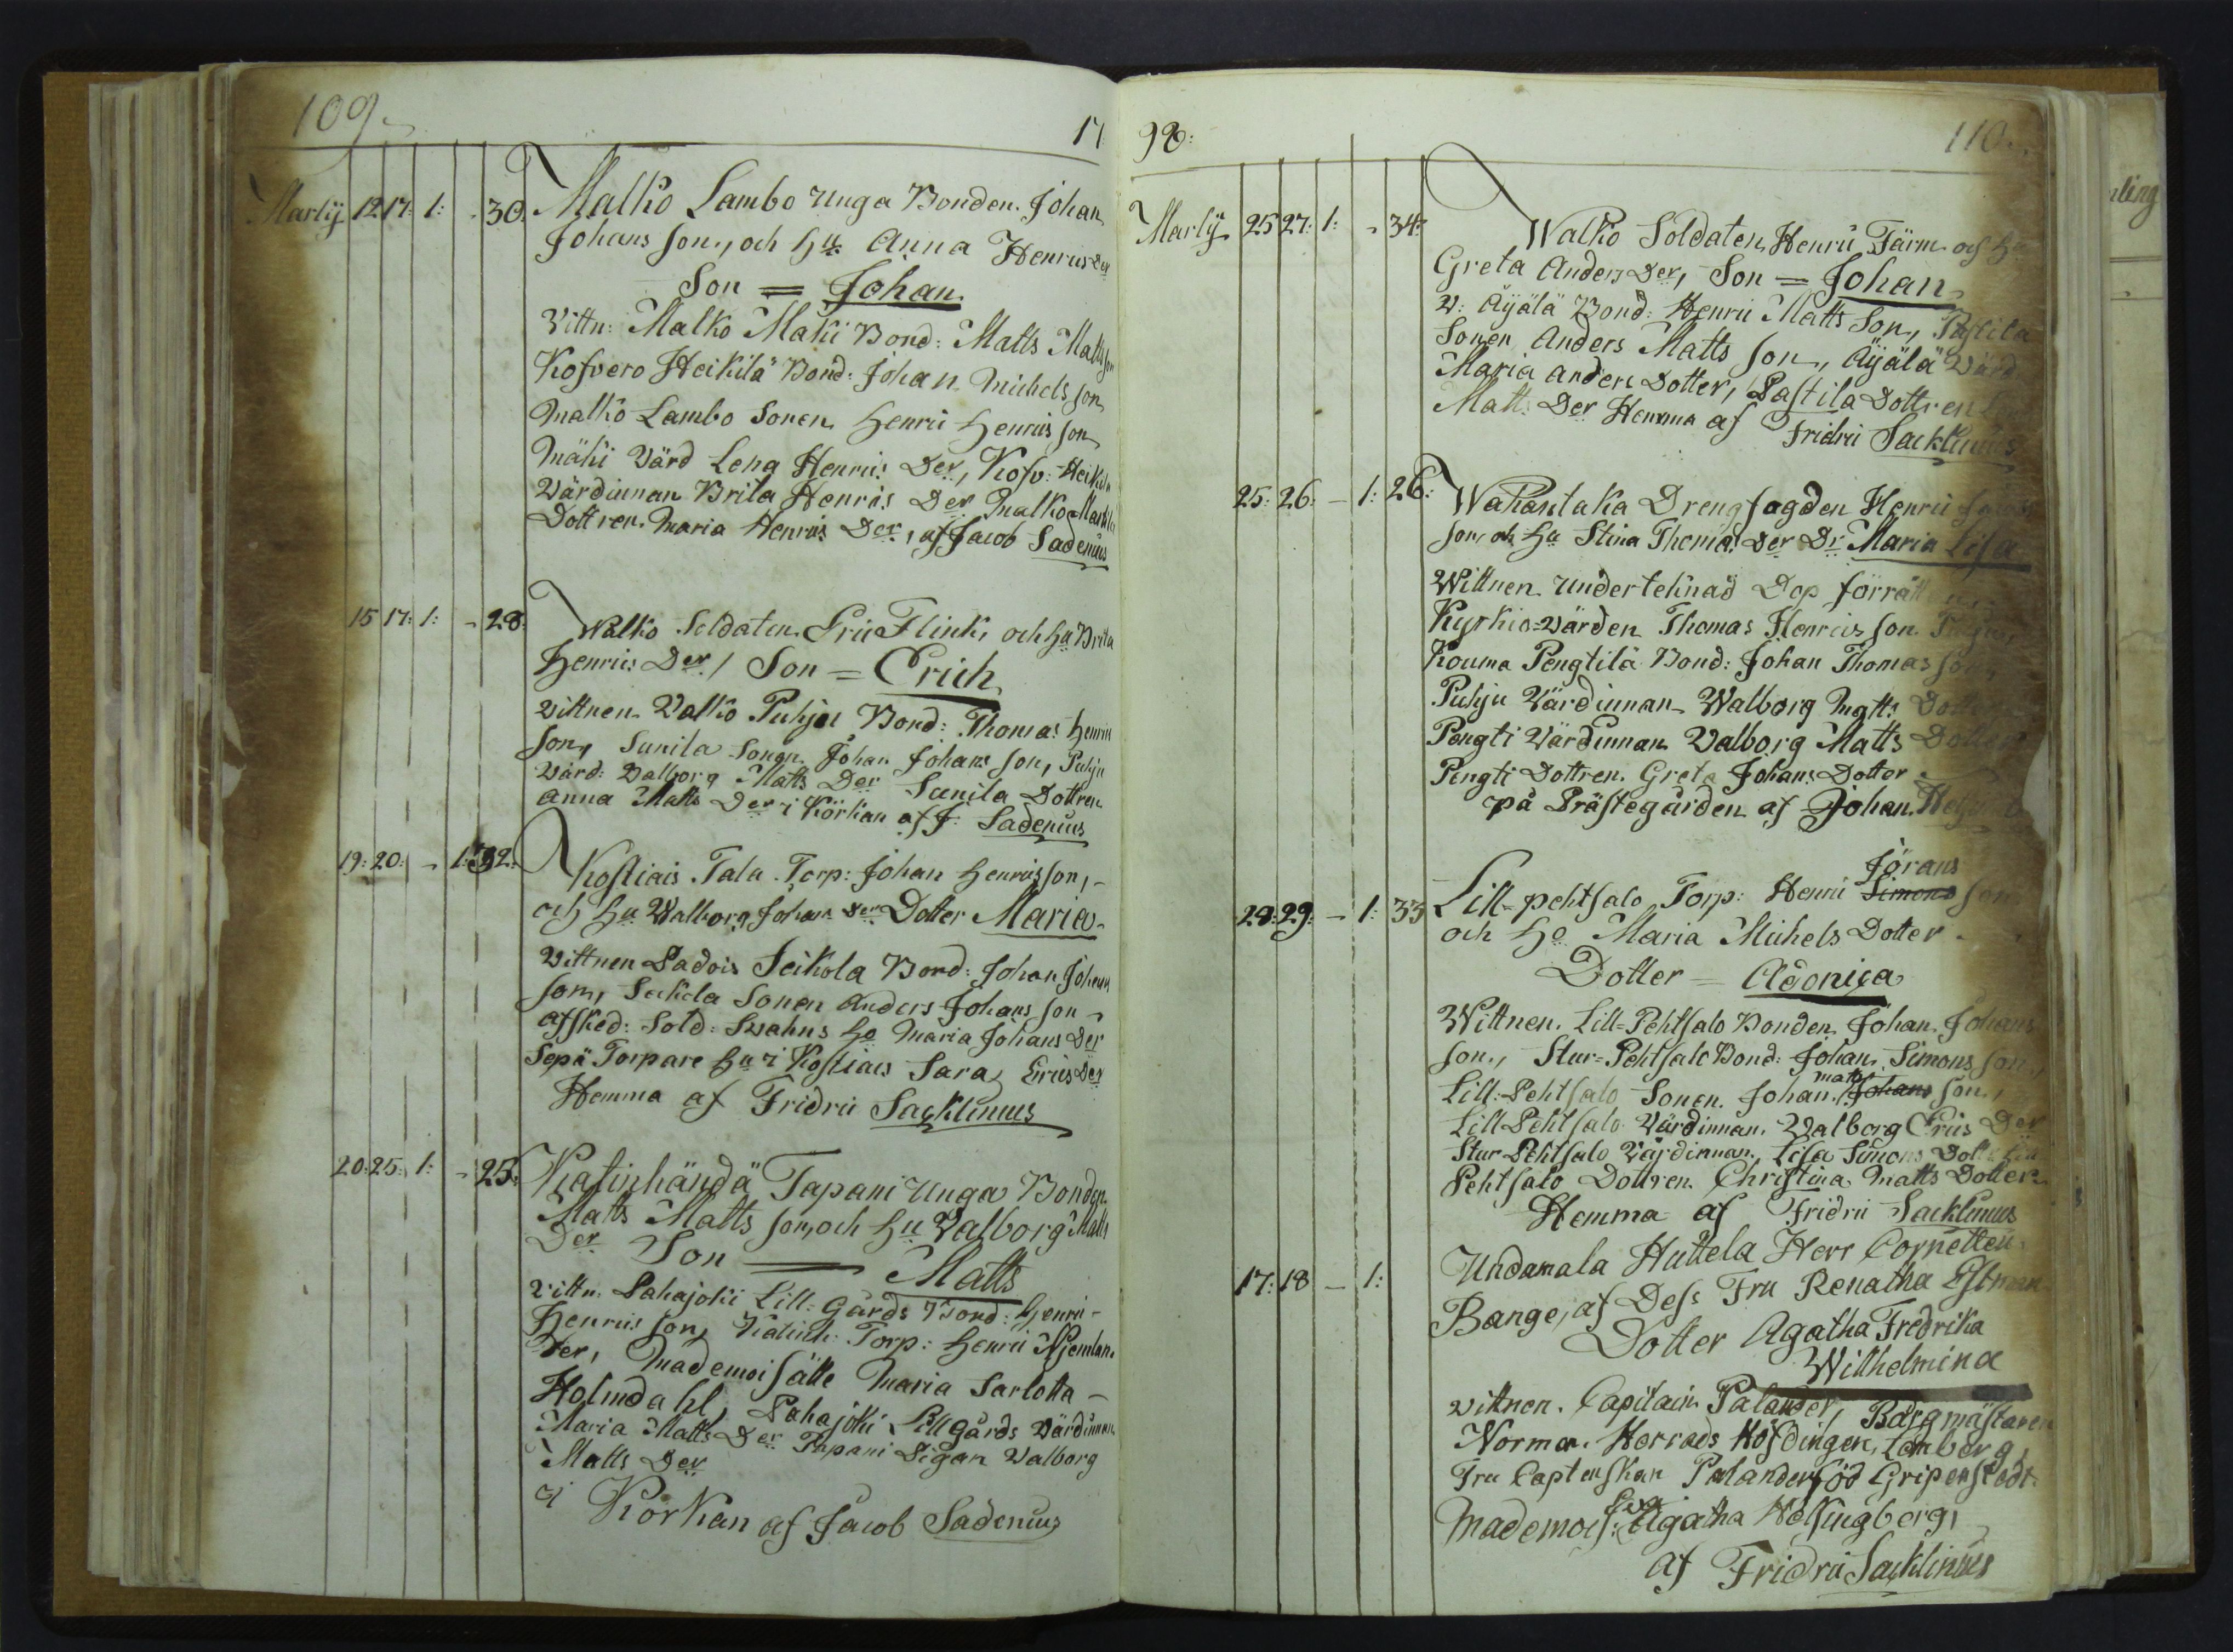 109.
17
Martij 12 17: 1: - 30. Malko Lambo unga Bonden. Johan
Johans son, och hu Anna Henrics Der
Son = Johan.
Vittn: Malko Maki Bond: Matts Matts son
Kofvero Heikilä Bond: Johan Michels son
Malko Lambo Sonen Henric Henrics son
Mäki Värd Lena Henrics Der, Kofv: Heikila
Värdinnan Brita Henrics Der Malko
Dottren. Maria Henrics Der, af Jacob Sadenius
15 17: 1: - 28: Walko Soldaten Eric Flink, och hu Brita
Henrics Der, Son = Erich
Vittnen Valko Puhju Bond: Thomas Henric
son, Sunila Sonen Johan Johans son, Puhju
Värd: Valborg Matts Der Sunila Dottren
Anna Matts Der i Körkan af J: Sadenius
19: 20: - 1: 32: Kostiais Tala Torp: Johan Henrics son, -
och hu Walborg Johans Der Dotter Maria.
Vittnen Sadois Seikola Bond: Johan Johans
son, Seikola Sonen Anders Johans son -
Afsked: Sold: Swahns ho Maria Johans Der
Sepä Torpare hu i Kostiais Sara Erics Der
Hemma af Fridric Sacklinius
20: 25: 1: - 25: Katinhändä Tapani unga Bonden
Matts Matts son, och hu Valborg Matts
Der Son = Matts
Vittn. Lahajoki Lill: Gårds Bond: Henric -
Henrics son, Katinh: Torp: Henric Njemlan
der, Mademoisälle Maria Sarlotta -
Holmdahl, Lahajoki Lillgårds Värdinnan
Maria Matts Der Tapani Pigan Valborg
Matts Der
i Körkan af Jacob Sadenius
98:
110.
Martij 25 27: 1: - 34: Walko Soldaten Henric Färm och hu
Greta Anders Der, Son = Johan
V: Äyälä Bond: Henric Matts Son, Pastila
Sonen Anders Matts son, Äyälä Värd
Maria Anders Dotter, Pastila Dottren
Matts Der Hemma af Fridric Sacklinius
25: 26: - 1: 26: Wahantaka Drengfogden Henric
son, och hu Stina Thomas Der Dr Maria Lisa
Wittnen underteknad Dop förrätt
Kyrkio-värden Thomas Henrics son
Kouma Pengtilä Bond: Johan Thomas son,
Puhju Värdinnan Walborg Matts Dotter
Pengti Värdinnan Valborg Matts Dotter
Pengti Dottren. Greta Johans Dotter
på Prästegården af Johan.
28: 29: - 1: 33 Lill-pehtsalo Torp: Henric Simons Jörans son
och ho Maria Michels Dotter
Dotter = Adoniga
Wittnen. Lill-Pehtsalo Bonden. Johan. Johans
son, Stur-Pehtsalo Bond: Johan Simons son,
Lill-Pehtsalo Sonen. Johan Johans matts son,
Lill Pehtsalo Värdinnan. Valborg Erics Der
Stur Pehtsalo Värdinnan. Lisa Simons Dott Lill
Pehtsalo Dottren. Christina Matts Dotter
Hemma af Fridric Sacklinius
17: 18 - 1: Undamala Huttela Herr Cornetten
Bange, af Dess Fru Renatha Estman
Dotter Agatha Fredrika
Willhelmina
Vittnen. Capitain Palander, Bärgmästaren
Norman. Herrads Höfdingen, Lemberg,
Fru Captenskan Palander född Gripenstedt.
Mademois: Eva Agatha Helsingberg,
af Fridric Sacklinius